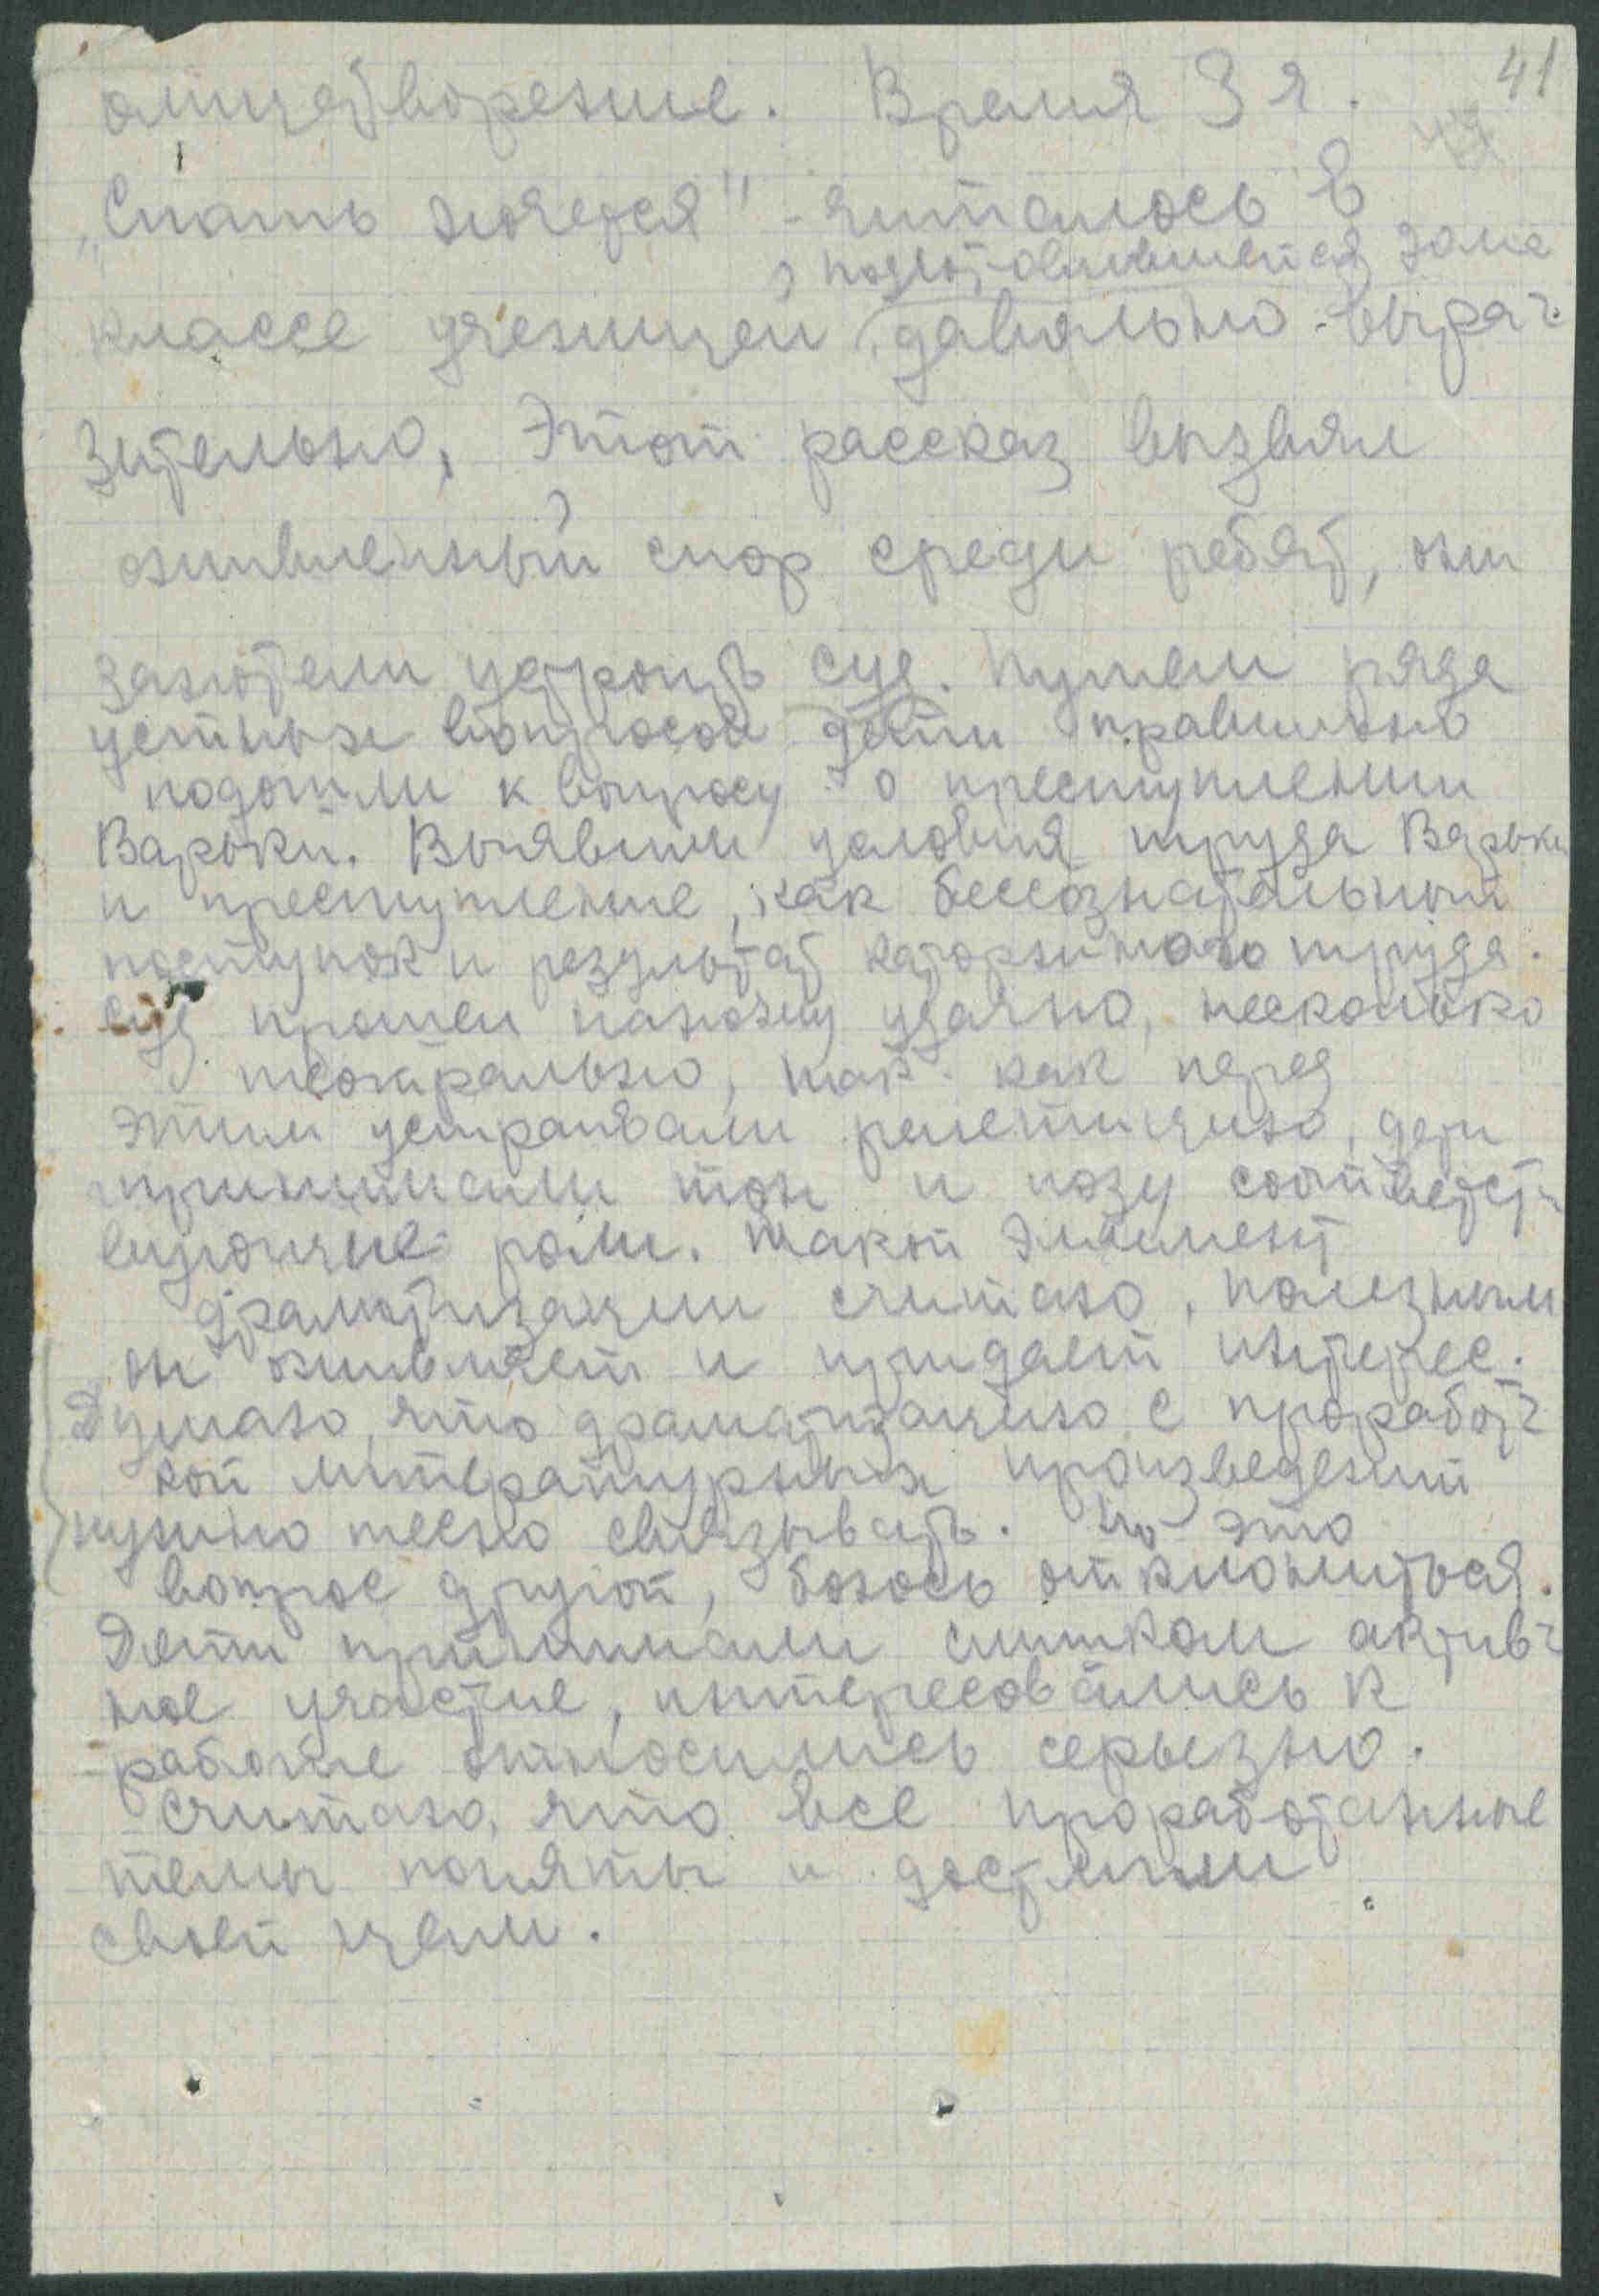 41
олицетворение. Время 3 ч.
„Спать хочется" - читалось в
подготовившейся дома
классе ученицей, довольно выра-
зительно, Этот рассказ вызвал
оживленный спор среди ребят, они
захотели устроить суд. Путем ряда
устных вопросов дети правильно
подошли к вопросу о преступлении
Варьки. Выявили условия труда Варьки
и преступление, как бессознательный
поступок и результат каторжного труда.
Суд прошел по-моему удачно, несколько
театрально, так как перед
этим устраивали репетицию, дети
принимали тон и позу соответст-
вующие роли. Такой элемент
драматизации считаю, полезным
он оживляет и придает интерес.
Думаю, что драматизацию с проработ-
кой литературных произведений
нужно тесно связывать. Но это
вопрос другой, боюсь отклониться.
Дети принимали слишком актив-
ное участие, интересовались к
работе относились серьезно.
Считаю, что все проработанные
темы поняты и достигли
своей цели.